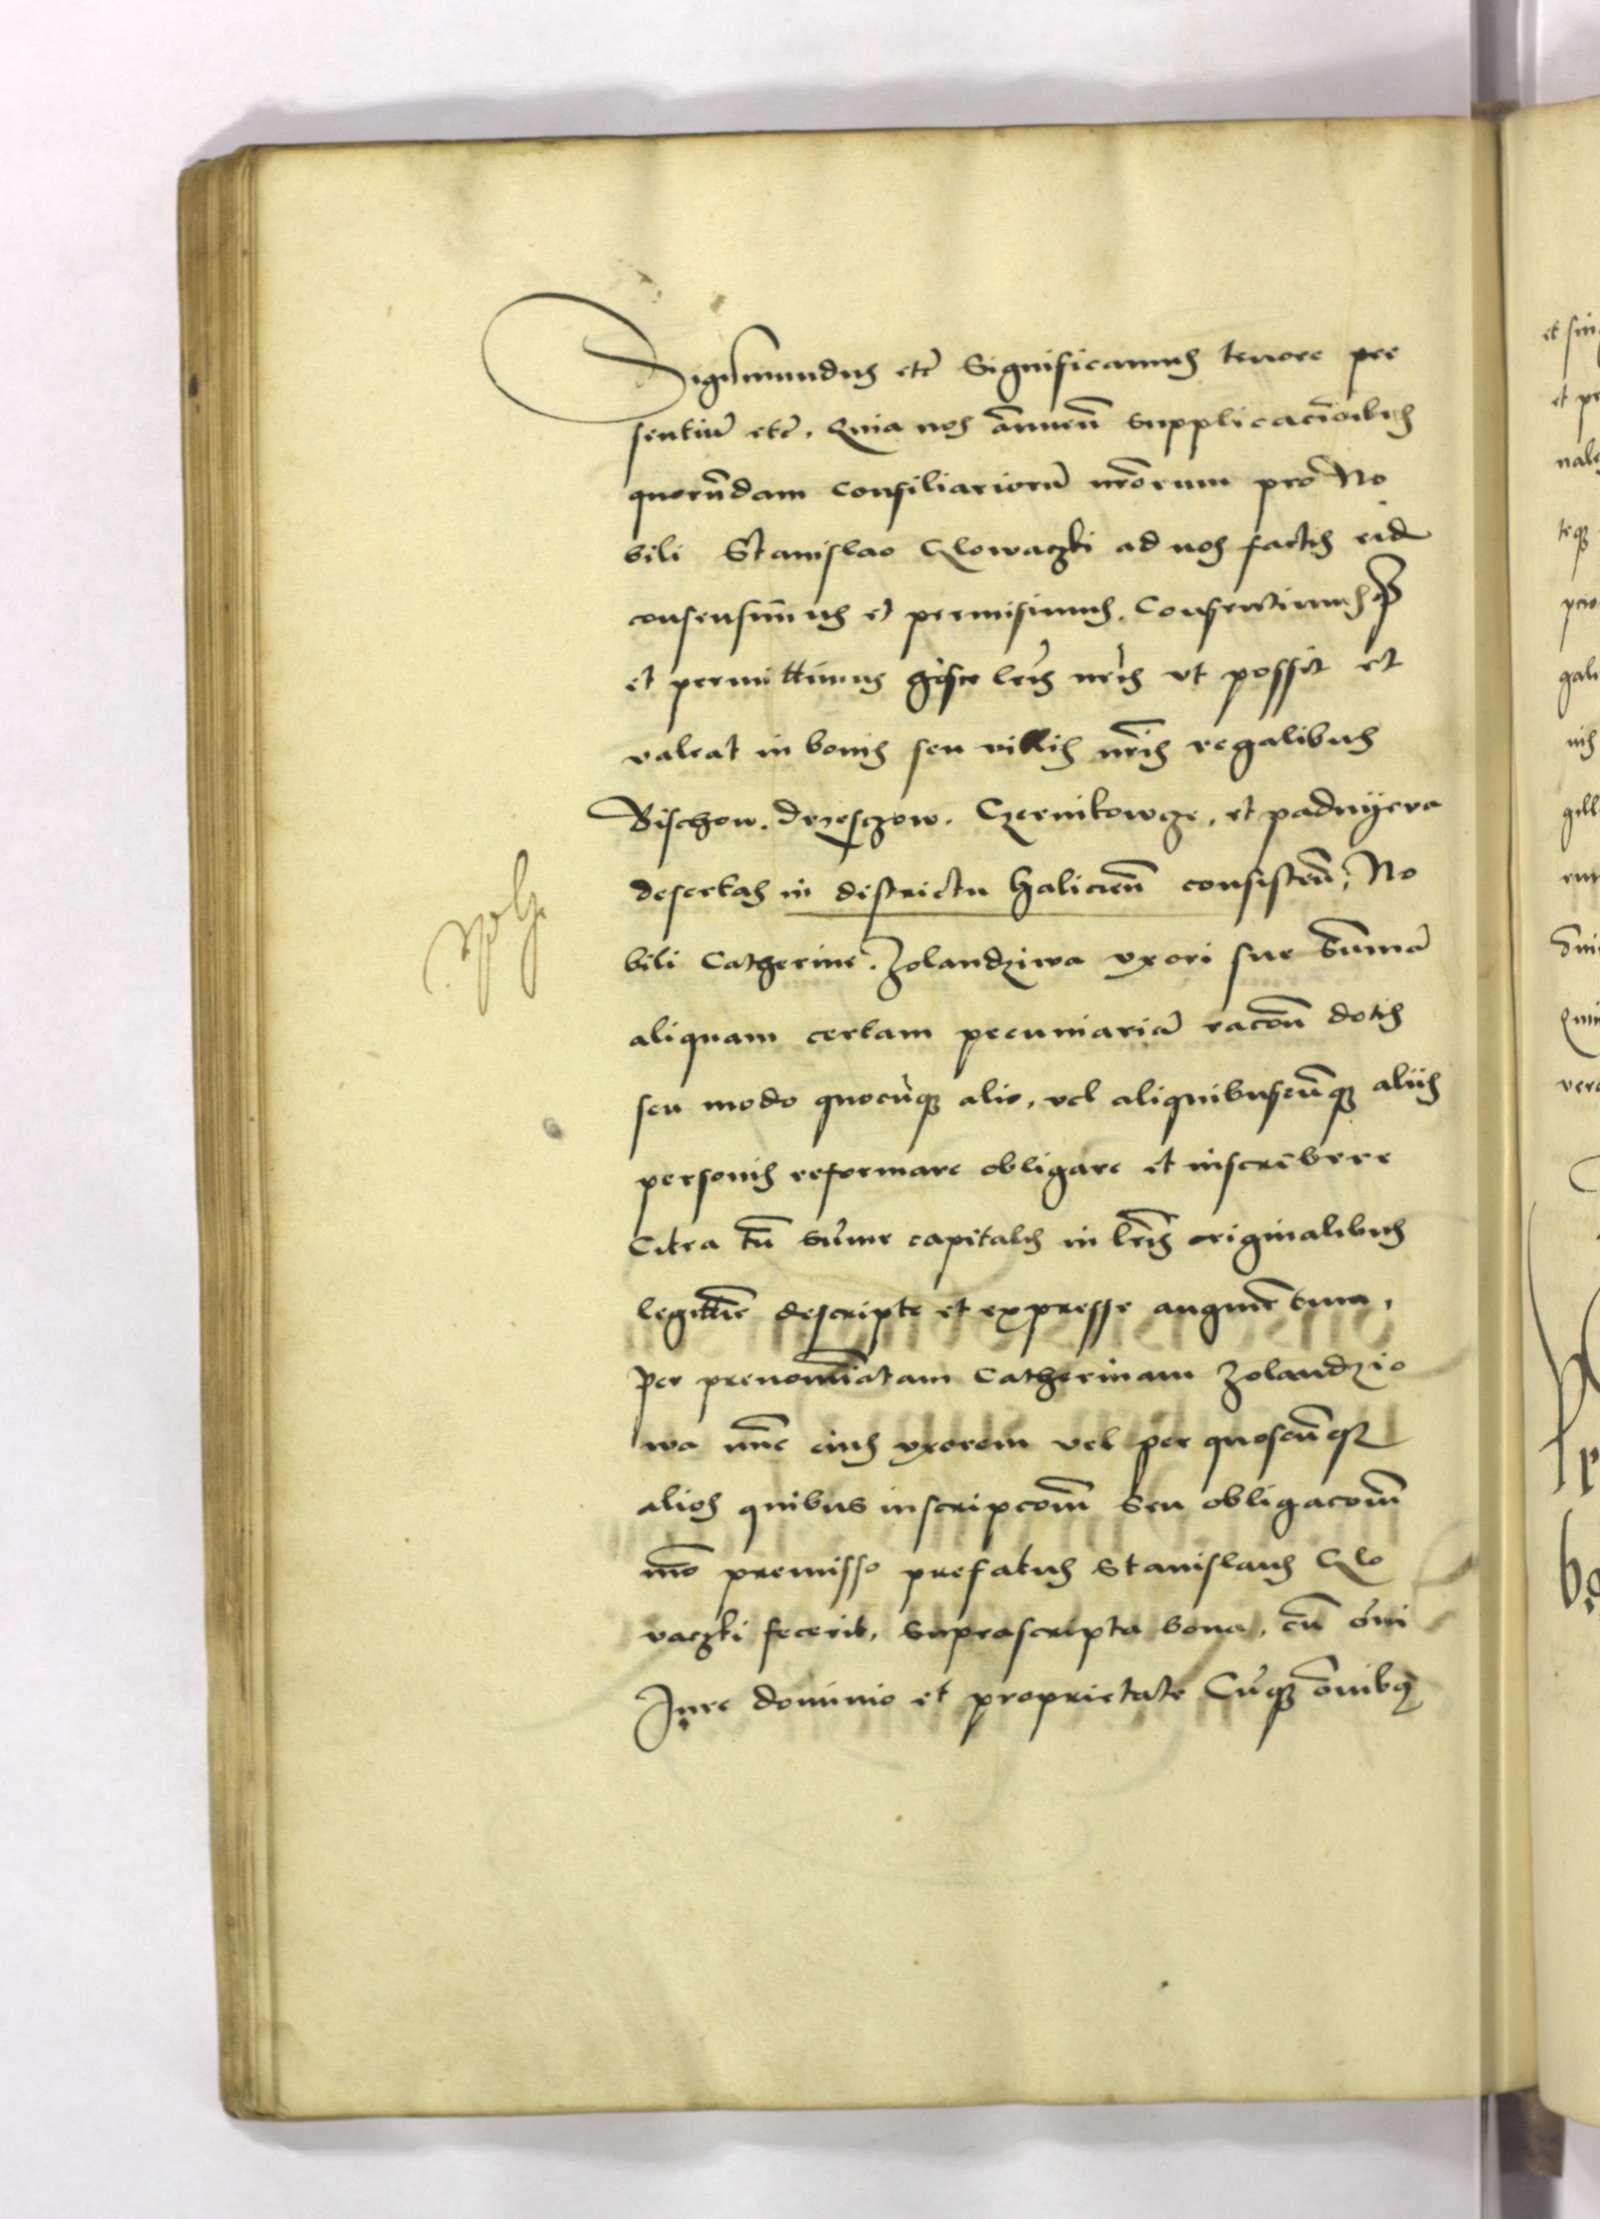 Sigismundus etc̄ Significamus tenore pre
sentiū etc̄. Quia nos ānuen̄ supplicaciōibus
quorūdam consiliariorū nrōrum pro No
bili Stanislao Clowaczki ad nos factis eid
consensimus et permisimus. Consentimusq̄
et permittimus hisce lrīs nrīs vt possit et
valeat in bonis seu villis nrīs regalibus
Bischow. Drzesczow. Czernikowcze. et padnÿera
desertas in districtu halicien̄ consisten̄, No
bili Catherine. Zolandziwa vxori sue sūmā
aliquam certam pecuniariā racōn̄ dotis
seu modo quocūqꝫ alio, vel aliquibuscūqꝫ aliis
personis reformare obligare et inscribere
Citra tn̄ sūme capitalis in lrīs originalibus
legittīe descripte et expresse augmētum,
per prenomīatam Catherinam Zolandzio
wa nūc eius vxorem vel per quoscūqꝫ
alios quibus inscripcōm̄ seu obligacōm̄
mō premisso prefatus Stanislaus Clo
vaczki fecerit, suprascripta bona, cū om̄i
Jure dominio et proprietate Cūqꝫ om̄ibꝫ